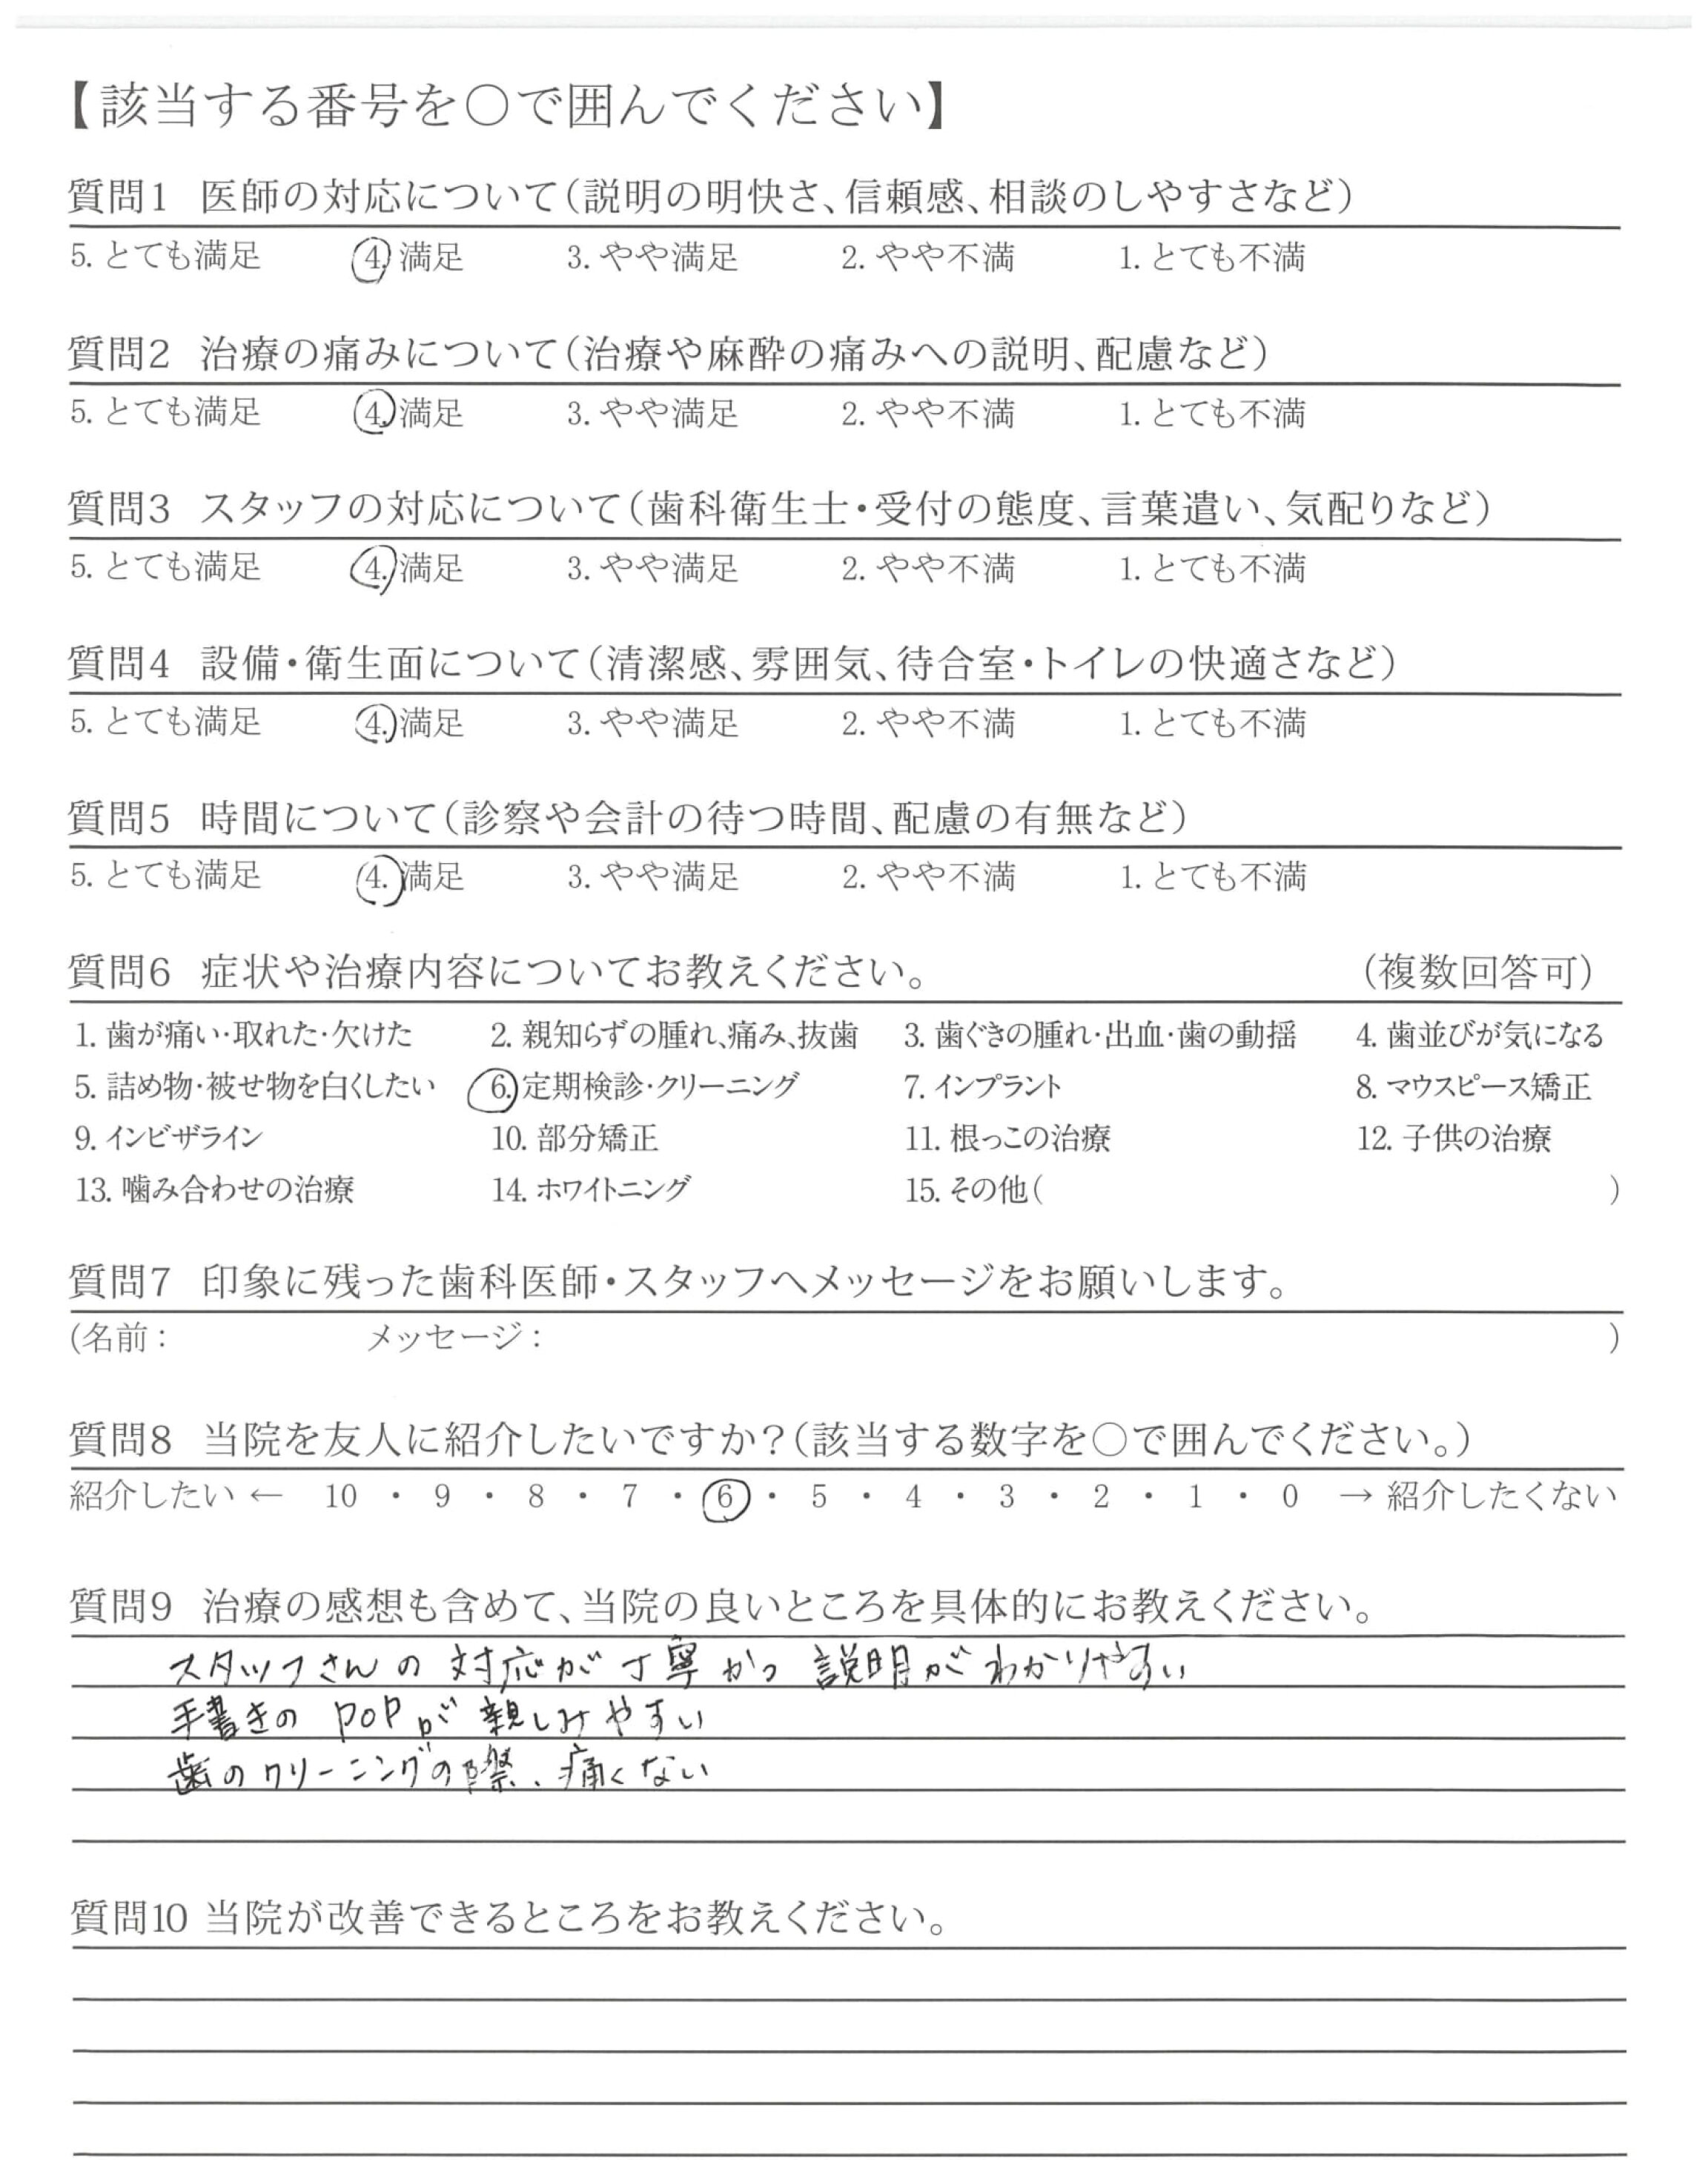 【該当する番号を○で囲んでください】
質問1 医師の対応について(説明の明快さ、信頼感、相談のしやすさなど)
5. とても満足 4. 満足 3. やや満足 2. やや不満 1. とても不満
質問2 治療の痛みについて(治療や麻酔の痛みへの説明、配慮など)
5. とても満足 4. 満足 3. やや満足 2. やや不満 1. とても不満
質問3 スタッフの対応について(歯科衛生士・受付の態度、言葉遣い、気配りなど)
5. とても満足 4. 満足 3. やや満足 2. やや不満 1. とても不満
質問4 設備・衛生面について(清潔感、雰囲気、待合室・トイレの快適さなど)
5. とても満足 4. 満足 3. やや満足 2. やや不満 1. とても不満
質問5 時間について(診察や会計の待つ時間、配慮の有無など)
5. とても満足 4. 満足 3. やや満足 2. やや不満 1. とても不満
質問6 症状や治療内容についてお教えください。 (複数回答可)
1. 歯が痛い・取れた・欠けた 2. 親知らずの腫れ、痛み、抜歯 3. 歯ぐきの腫れ・出血・歯の動揺 4. 歯並びが気になる
5. 詰め物・被せ物を白くしたい 6. 定期検診・クリーニング 7. インプラント 8. マウスピース矯正
9. インビザライン 10. 部分矯正 11. 根っこの治療 12. 子供の治療
13. 噛み合わせの治療 14. ホワイトニング 15. その他( )
質問7 印象に残った歯科医師・スタッフへメッセージをお願いします。
(名前: メッセージ: )
質問8 当院を友人に紹介したいですか?(該当する数字を○で囲んでください。)
紹介したい ← 10 ・ 9 ・ 8 ・ 7 ・ 6 ・ 5 ・ 4 ・ 3 ・ 2 ・ 1 ・ 0 → 紹介したくない
質問9 治療の感想も含めて、当院の良いところを具体的にお教えください。
スタッフさんの対応が丁寧かつ説明がわかりやすい
手書きのPOPが親しみやすい
歯のクリーニングの際、痛くない
質問10 当院が改善できるところをお教えください。